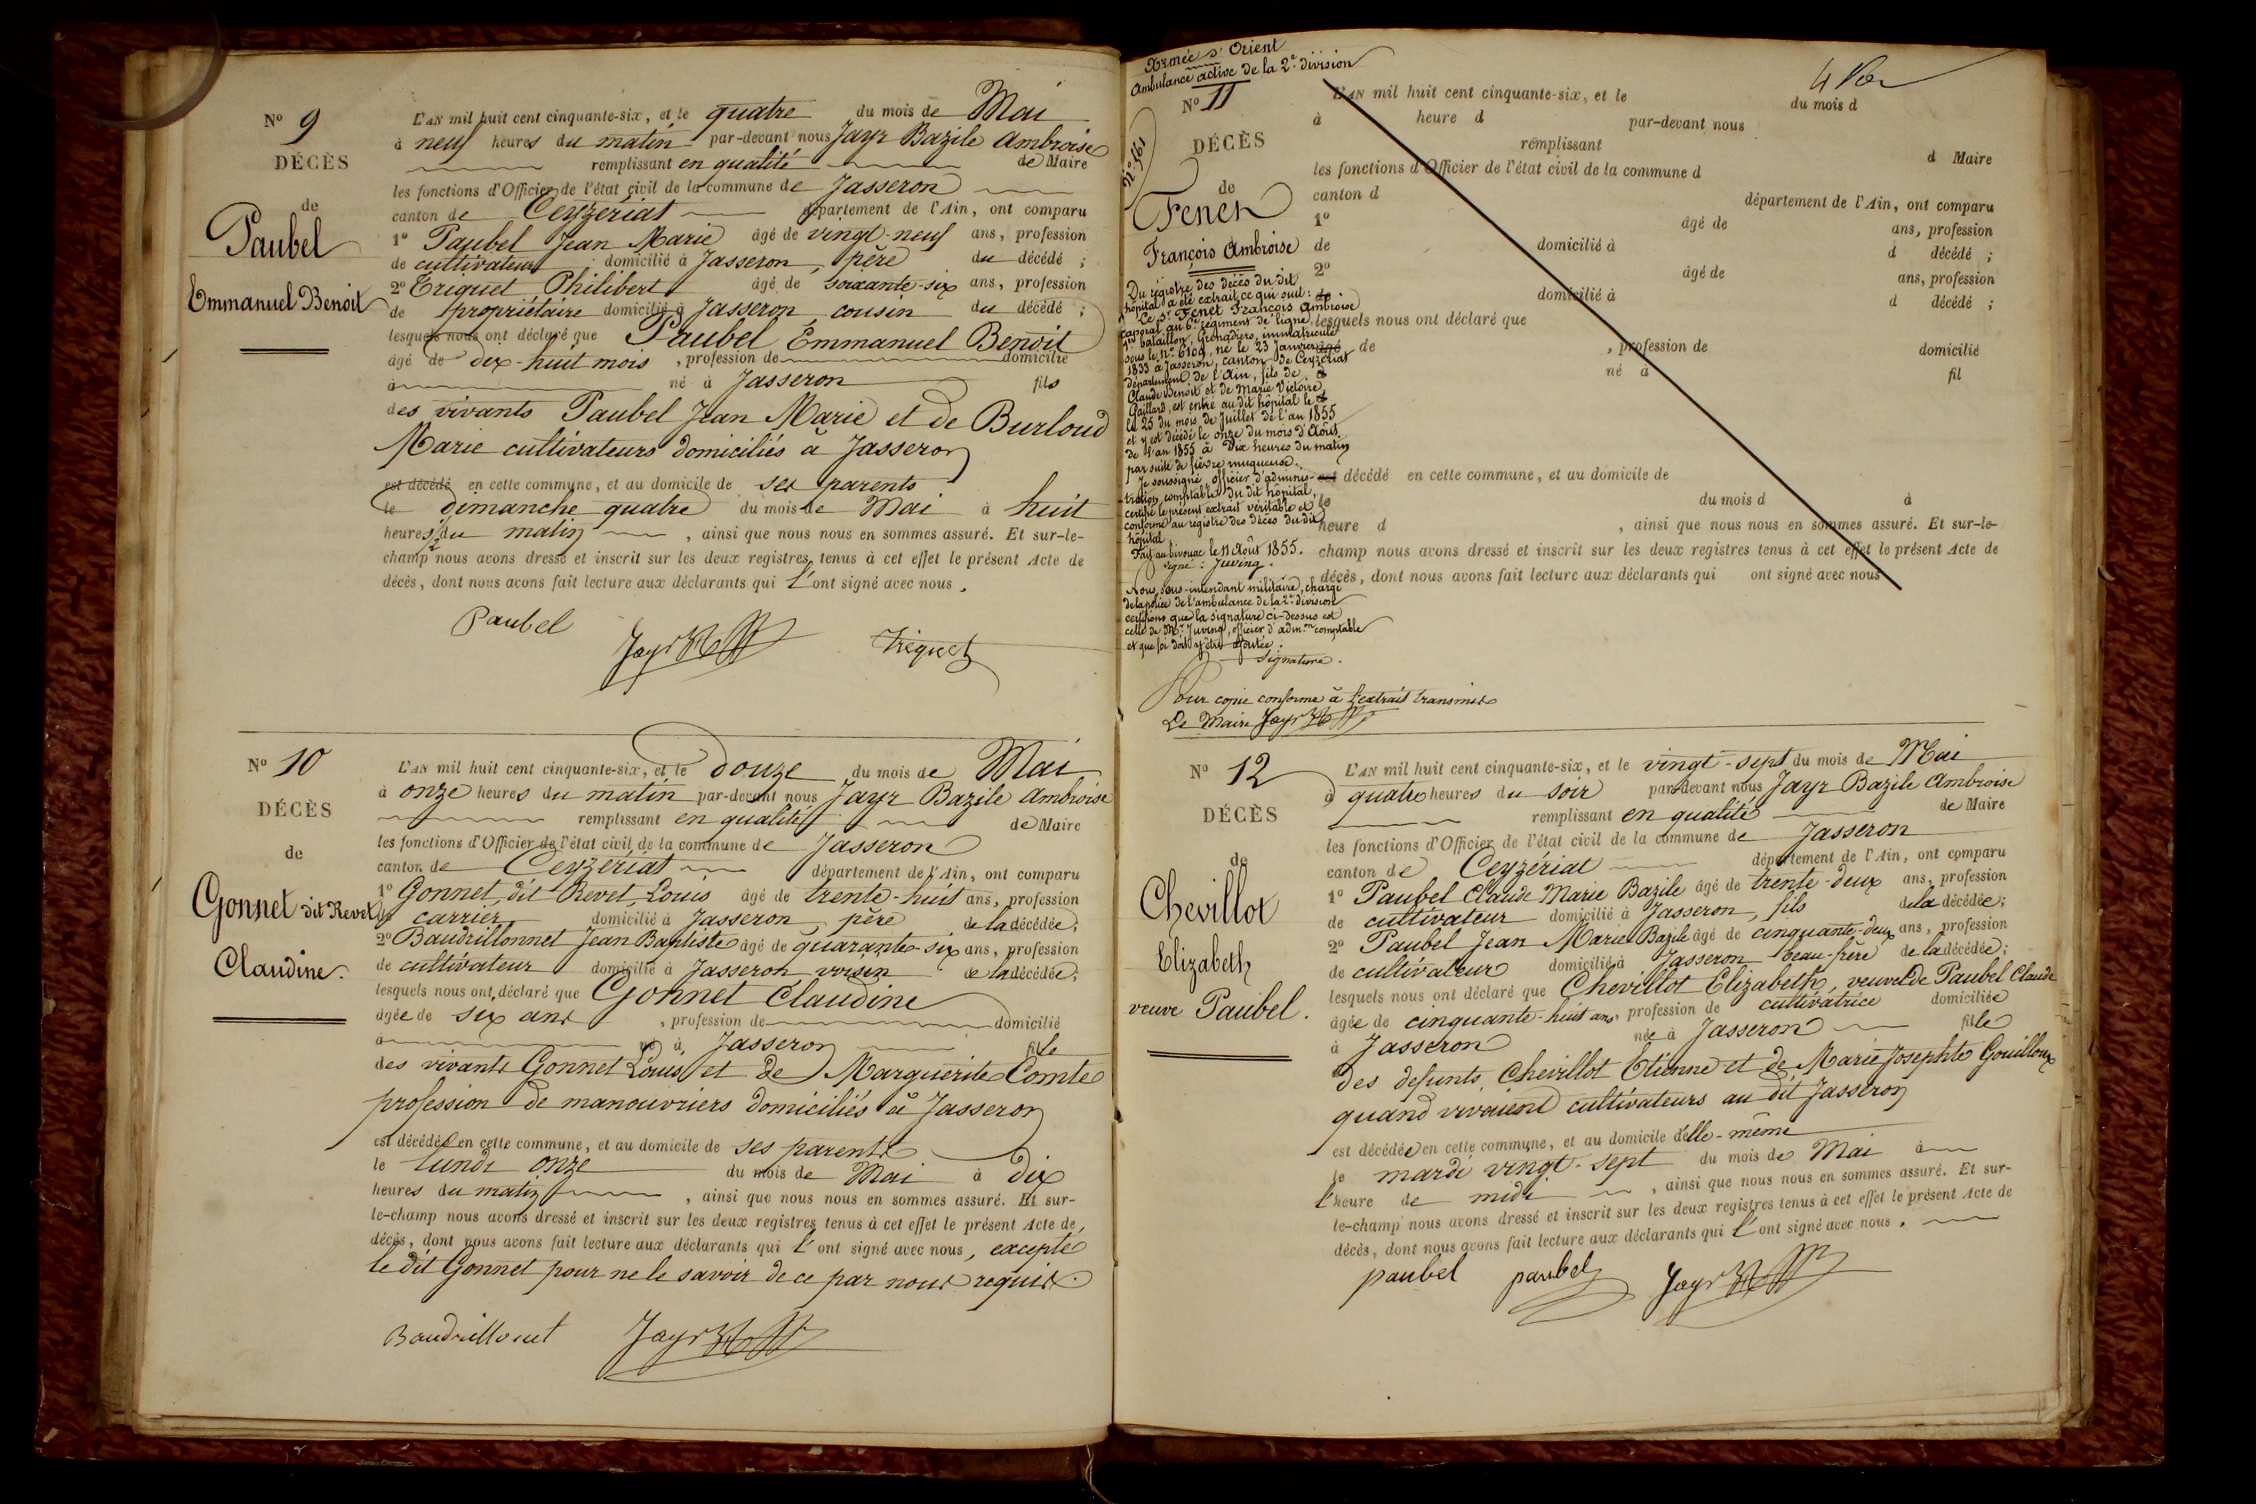 Nº 9
DÉCÈS
de
Paubel
Emmanuel Benoit
L'AN mil huit cent cinquante-six, et le quatre du mois de Mai
à neuf heures du matin par-devant nous Jayr Bazile Ambroise
remplissant en qualité de Maire
les fonctions d'Officier de l'état civil de la commune de Jasseron
canton de Ceyzériat département de l'Ain, ont comparu
1º Paubel Jean Marie âgé de vingt-neuf ans, profession
de cultivateur domicilié à Jasseron, père du décédé ;
2º Triquet Philibert âgé de soixante-six ans, profession
de propriétaire domicilié à Jasseron cousin du décédé ;
lesquels nous ont déclaré que Paubel Emmanuel Benoit
âgé de dix-huit mois, profession de domicilié
à né à Jasseron fils
des vivants Paubel Jean Marie et de Burloud
Marie cultivateurs domiciliés à Jasseron
est décédé en cette commune, et au domicile de ses parents
le dimanche quatre du mois de Mai à huit
heures 1/2 du matin, ainsi que nous nous en sommes assuré. Et sur-le-
champ nous avons dressé et inscrit sur les deux registres tenus à cet effet le présent Acte de
décès, dont nous avons fait lecture aux déclarants qui l'ont signé avec nous.
Paubel Jayr Triquet
Nº 10
DÉCÈS
de
Gonnet dit Revet
Claudine.
L'AN mil huit cent cinquante-six, et le douze du mois de Mai
à onze heures du matin par-devant nous Jayr Bazile Ambroise
remplissant en qualité de Maire
les fonctions d'Officier de l'état civil de la commune de Jasseron
canton de Ceyzériat département de l'Ain, ont comparu
1º Gonnet, dit Revet, Louis âgé de trente-huit ans, profession
de carrier domicilié à Jasseron, père de la décédée ;
2º Baudrillonnet Jean Baptiste âgé de quarante-six ans, profession
de cultivateur domicilié à Jasseron voisin de la décédée ;
lesquels nous ont déclaré que Gonnet Claudine
âgée de six ans, profession de domicilié
à né à Jasseron fille
des vivants Gonnet Louis et de Marguerite Comte
profession de manouvriers domiciliés à Jasseron
est décédée en cette commune, et au domicile de ses parents
le lundi onze du mois de Mai à dix
heures du matin, ainsi que nous nous en sommes assuré. Et sur-
le-champ nous avons dressé et inscrit sur les deux registres tenus à cet effet le présent Acte de
décès, dont nous avons fait lecture aux déclarants qui l'ont signé avec nous, excepté
le dit Gonnet pour ne le savoir de ce par nous requis.
Baudrillonet Jayr
Armée d'Orient
Ambulance active de la 2e division
Nº 11
Nº 561
DÉCÈS
de
Fenet
François Ambroise
Du registre des décès du dit
hôpital a été extrait ce qui suit :
Le Sr Fenet François Ambroise
caporal au 6e régiment de ligne,
1er bataillon, Grenadiers, immatriculé
sous le nº 6109, né le 23 Janvier
1833 à Jasseron, canton de Ceyzériat
département de l'Ain, fils de
Claude Benoit et de Marie Victoire
Gaillard, est entré au dit hôpital le
le 25 du mois de Juillet de l'an 1855
et y est décédé le onze du mois d'Août
de l'an 1855 à Dix heures du matin
par suite de fièvre muqueuse.
Je soussigné, officier d'adminis-
tration, comptable du dit hôpital,
certifie le présent extrait véritable et
conforme au registre des décès du dit
hôpital
Fait au bivouac le 11 Août 1855.
signé : Juving.
Nous, Sous-intendant militaire, chargé
de la police de l'ambulance de la 2e division
certifions que la signature ci-dessus est
celle de Mr Juving, officier d'admon comptable
et que foi doit y être ajoutée.
Signature.
Pour copie conforme à l'extrait transmis
Le Maire Jayr
L'AN mil huit cent cinquante-six, et le du mois d
à heure d par-devant nous
remplissant d Maire
les fonctions d'Officier de l'état civil de la commune d
canton d département de l'Ain, ont comparu
1º âgé de ans, profession
de domicilié à d décédé ;
2º âgé de ans, profession
de domicilié à d décédé ;
lesquels nous ont déclaré que
âgé de , profession de domicilié
à né à fil
est décédé en cette commune, et au domicile de
le du mois d à
heure d , ainsi que nous nous en sommes assuré. Et sur-le-
champ nous avons dressé et inscrit sur les deux registres tenus à cet effet le présent Acte de
décès, dont nous avons fait lecture aux déclarants qui ont signé avec nous
Nº 12
DÉCÈS
de
Chevillot
Elizabeth
veuve Paubel.
L'AN mil huit cent cinquante-six, et le vingt-sept du mois de Mai
à quatre heures du soir par-devant nous Jayr Bazile Ambroise
remplissant en qualité de Maire
les fonctions d'Officier de l'état civil de la commune de Jasseron
canton de Ceyzériat département de l'Ain, ont comparu
1º Paubel Claude Marie Bazile âgé de trente-deux ans, profession
de cultivateur domicilié à Jasseron, fils de la décédée ;
2º Paubel Jean Marie Bazile âgé de cinquante-deux ans, profession
de cultivateur domicilié à Jasseron beau-frère de la décédée ;
lesquels nous ont déclaré que Chevillot Elizabeth, veuve de Paubel Claude
âgée de cinquante-huit ans, profession de cultivatrice domiciliée
à Jasseron née à Jasseron fille
des defunts Chevillot Etienne et de Marie Josephte Gouilloux
quand vivaient cultivateurs au dit Jasseron
est décédée en cette commune, et au domicile d'elle-même
le mardi vingt-sept du mois de Mai à
l'heure de midi, ainsi que nous nous en sommes assuré. Et sur-
le-champ nous avons dressé et inscrit sur les deux registres tenus à cet effet le présent Acte de
décès, dont nous avons fait lecture aux déclarants qui l'ont signé avec nous.
paubel paubel Jayr